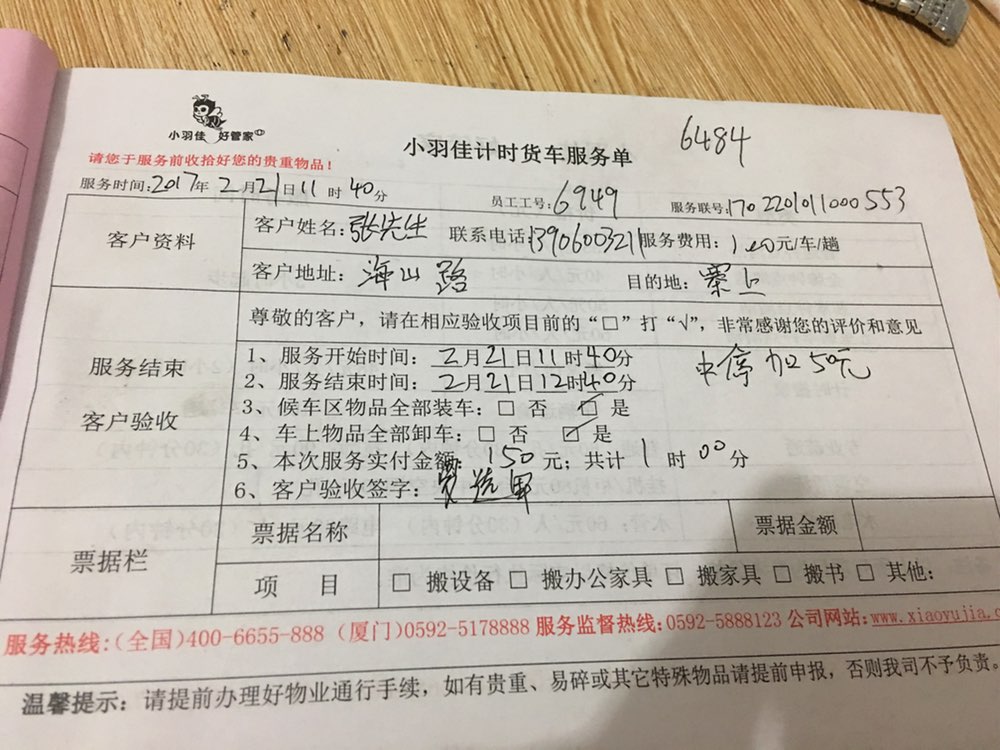 小羽佳 好管家
6484
小羽佳计时货车服务单
请您于服务前收拾好您的贵重物品！
服务时间：2017年 2月21日11时40分 员工工号：6949 服务联号：1702201011000553
客户资料
客户姓名：张先生 联系电话：1390600321 服务费用：100元/车/趟
客户地址：海山路 目的地：寨上
服务结束
客户验收
尊敬的客户，请在相应验收项目前的“□”打“√”，非常感谢您的评价和意见
1、服务开始时间：2月21日11时40分
中停加50元
2、服务结束时间：2月21日12时40分
3、候车区物品全部装车：□ 否 ☑ 是
4、车上物品全部卸车：□ 否 ☑ 是
5、本次服务实付金额：150元；共计 1 时 00 分
6、客户验收签字：
票据栏
票据名称 票据金额
项 目 □ 搬设备 □ 搬办公家具 □ 搬家具 □ 搬书 □ 其他：
服务热线：(全国)400-6655-888 (厦门)0592-5178888 服务监督热线：0592-5888123 公司网站：www.xiaoyujia.c
温馨提示：请提前办理好物业通行手续，如有贵重、易碎或其它特殊物品请提前申报，否则我司不予负责。